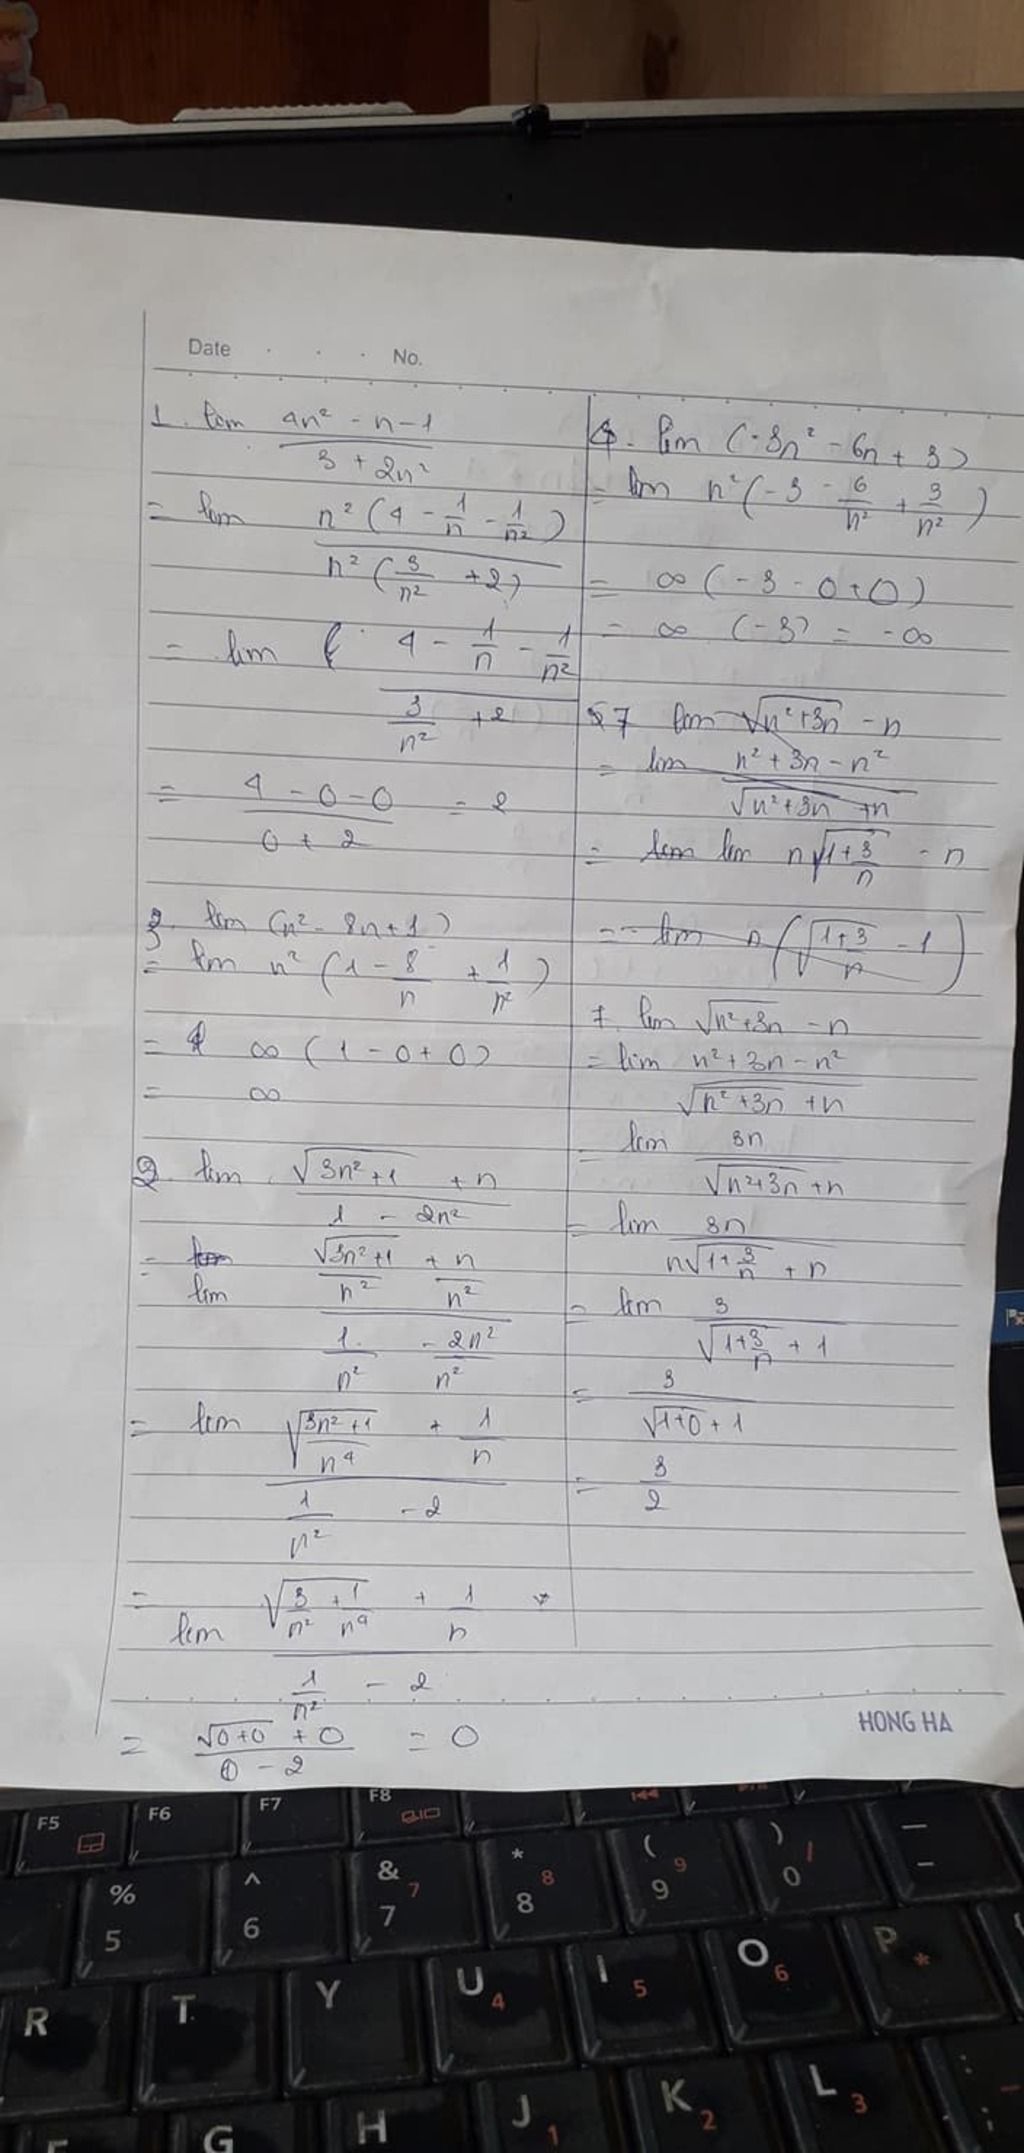 Date . . . No.
1. lim (4n² - n - 1)/(3 + 2n²)
= lim n²(4 - 1/n - 1/n²)/n²(3/n² + 2)
= lim (4 - 1/n - 1/n²)/(3/n² + 2)
= (4 - 0 - 0)/(0 + 2) = 2
3. lim (n² - 8n + 1)
= lim n²(1 - 8/n + 1/n²)
= ∞ (1 - 0 + 0)
= ∞
2. lim (√(3n² + 1) + n)/(1 - 2n²)
= lim (√(3n² + 1)/n² + n/n²)/(1/n² - 2n²/n²)
= lim (√((3n² + 1)/n⁴) + 1/n)/(1/n² - 2)
= lim (√(3/n² + 1/n⁴) + 1/n)/(1/n² - 2)
= (√(0 + 0) + 0)/(0 - 2) = 0
4. lim (-3n² - 6n + 3)
= lim n²(-3 - 6/n² + 3/n²)
= ∞ (-3 - 0 + 0)
= ∞ (-3) = -∞
7 lim √(n² + 3n) - n
= lim (n² + 3n - n²)/(√(n² + 3n) + n)
= lim lim n√(1 + 3/n) - n
= lim n(√(1 + 3/n) - 1)
7. lim √(n² + 3n) - n
= lim (n² + 3n - n²)/(√(n² + 3n) + n)
= lim 3n/(√(n² + 3n) + n)
= lim 3n/(n√(1 + 3/n) + n)
= lim 3/(√(1 + 3/n) + 1)
= 3/(√(1 + 0) + 1)
= 3/2
HONG HA
F5 F6 F7 F8
% 5 ^ 6 & 7 7 * 8 8 ( 9 9 ) 0 /
R T Y U 4 I 5 O 6 P *
G H J 1 K 2 L 3